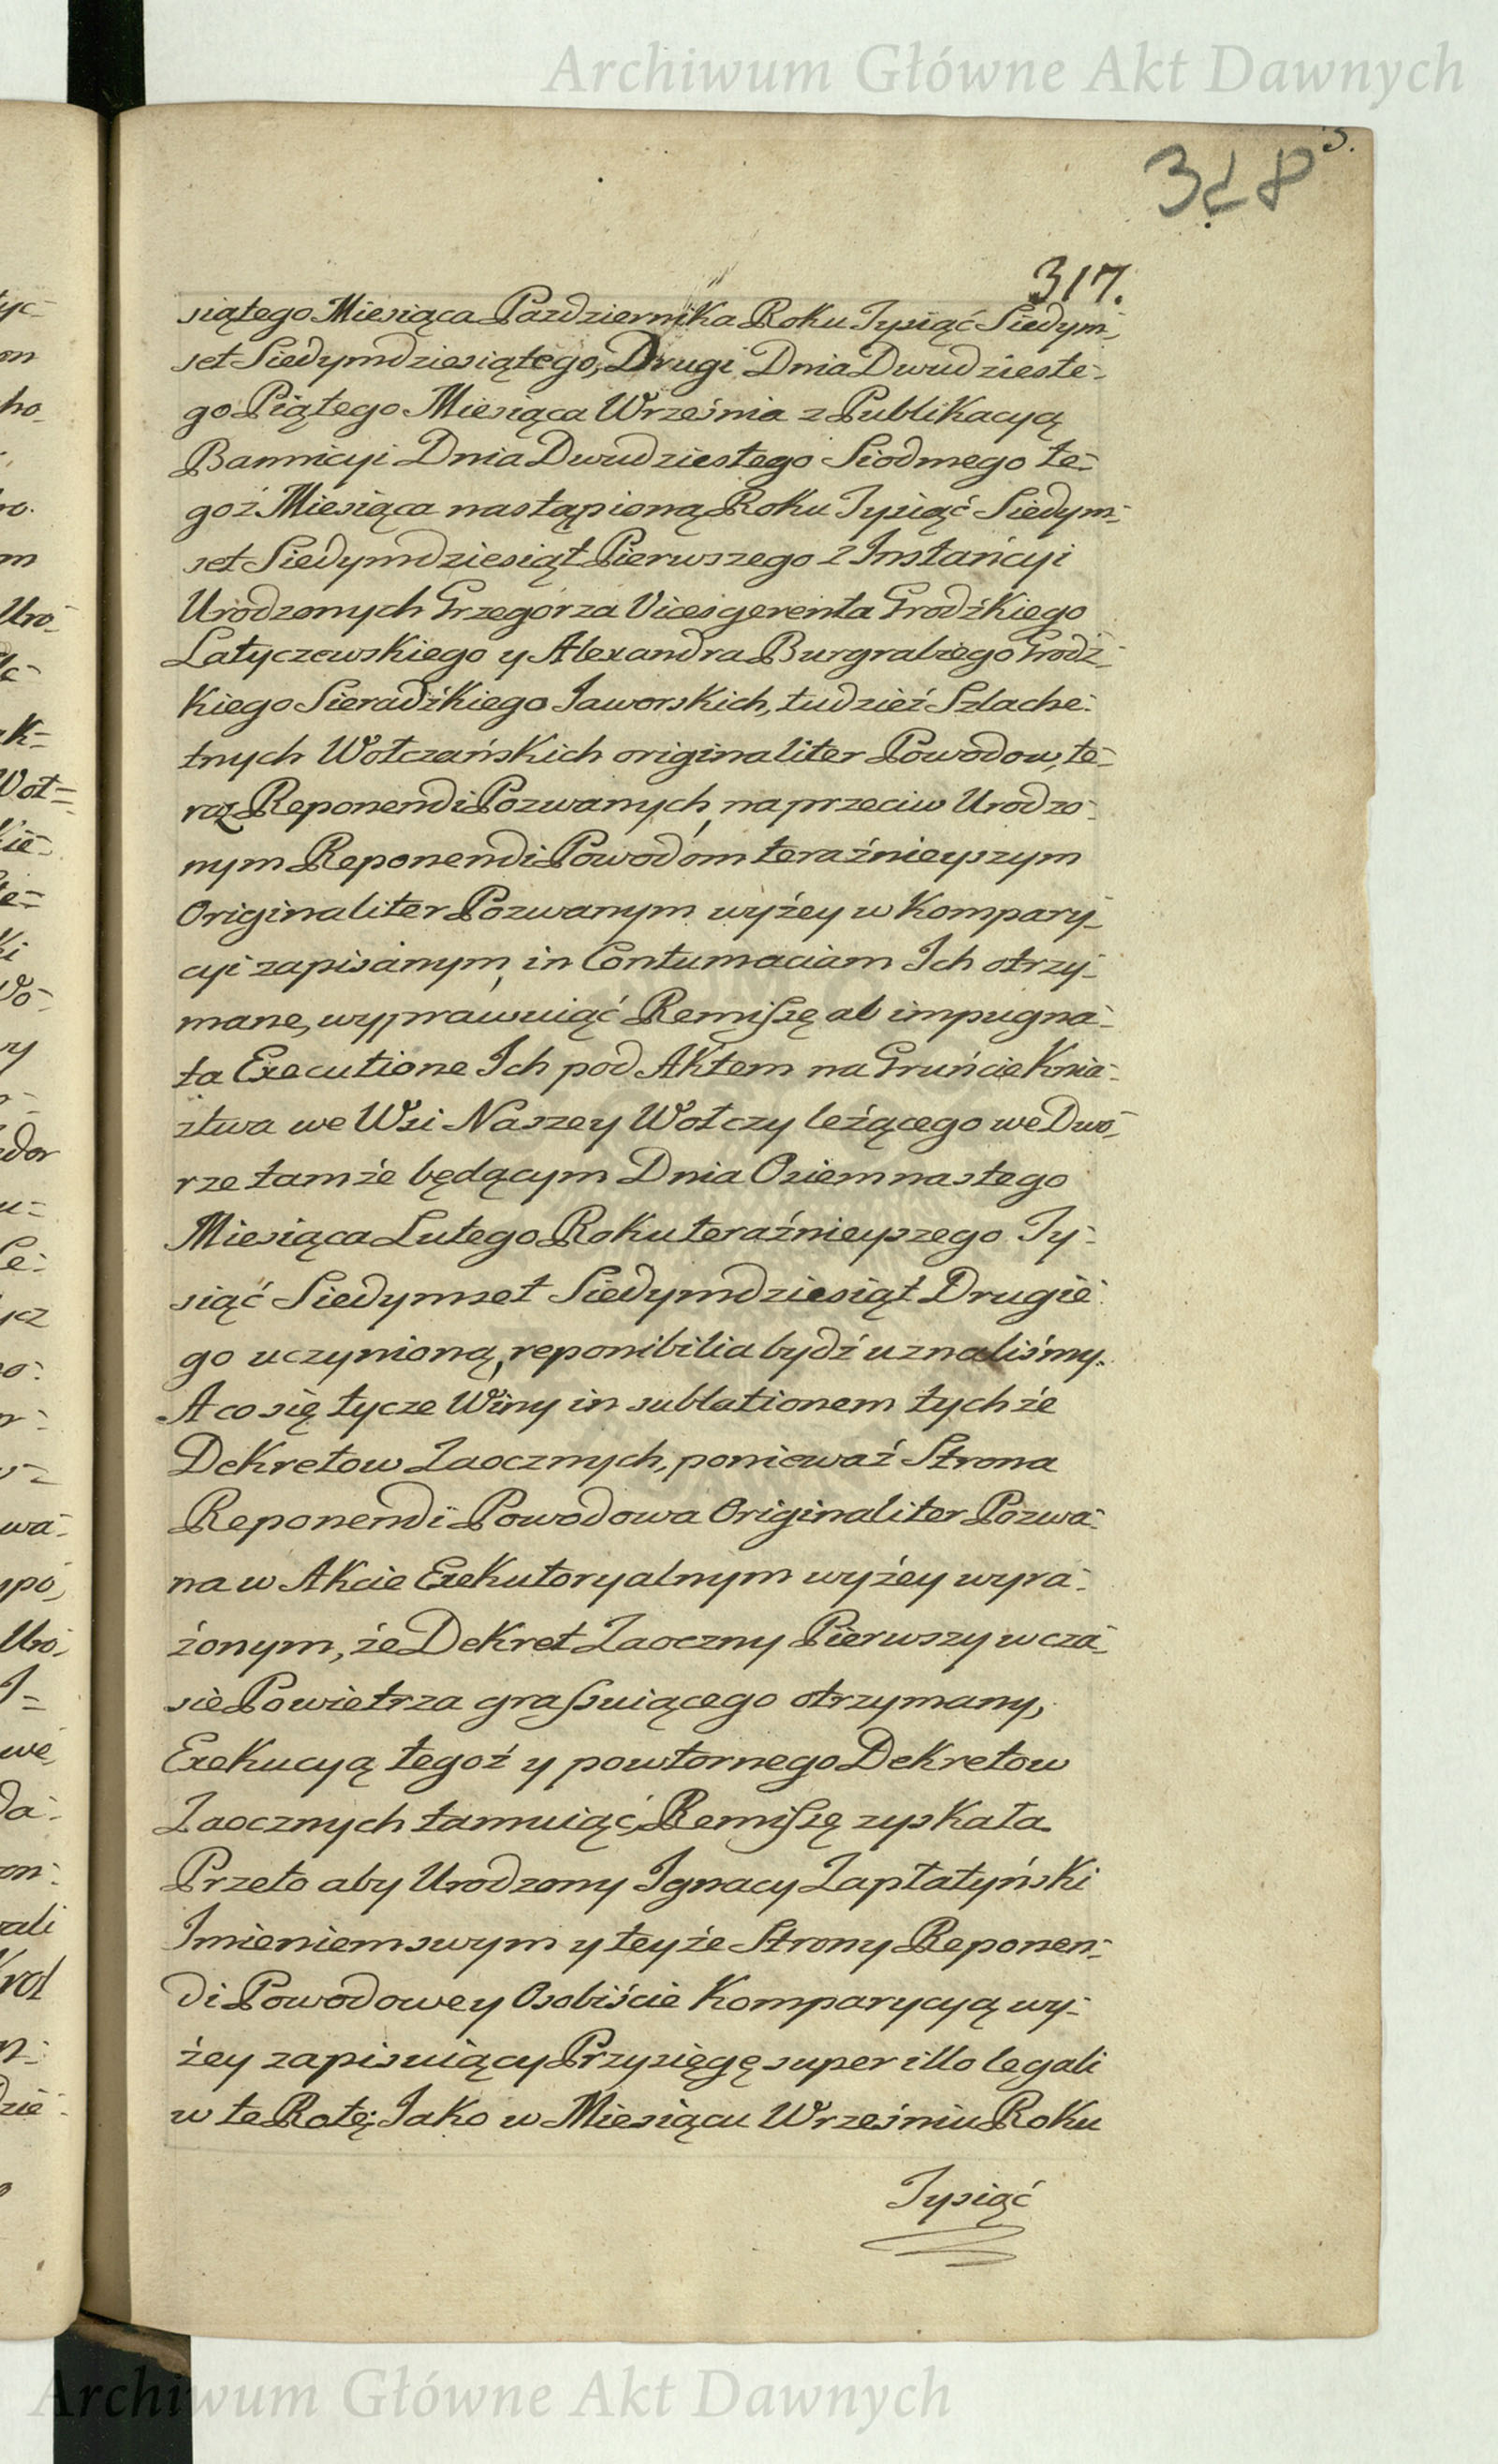 Archiwum Główne Akt Dawnych
3.
318
317.
siątego Miesiąca Pazdziernika Roku Tysiąć Siedym-
set Siedymdziesiątego, Drugi Dnia Dwudzieste-
go Piątego Miesiąca Września z Publikacyą
Bannicyi Dnia Dwudziestego Siodmego te-
goż Miesiąca nastąpioną Roku Tysiąć Siedym-
set Siedymdziesiąt Pierwszego z Instańcyi
Urodzonych Grzegorza Vicesgerenta Grodźkiego
Latyczewskiego y Alexandra Burgrabiego Grodź-
kiego Sieradźkiego Jaworskich, tudzież Szlache-
tnych Wołczańskich originaliter Powodow, te-
raz Reponendi Pozwanych, naprzeciw Urodzo-
nym Reponendi Powodom teraźnieyszym
Originaliter Pozwanym wyżey w Kompary-
cyi zapisanym, in Contumaciam Ich otrzy-
mane, wyprawuiąć Remissę ab impugna-
ta Executione Ich pod Aktem na Gruńcie Knia-
ztwa we Wsi Naszey Wołczy leżącego we Dwo-
rze tamże będącym Dnia Osiemnastego
Miesiąca Lutego Roku teraźnieyszego Ty-
siąć Siedymset Siedymdziesiąt Drugie-
go uczynioną, reponibilia bydź uznaliśmy.
A co się tycze Winy in sublationem tychże
Dekretow Zaocznych, ponieważ Strona
Reponendi Powodowa Originaliter Pozwa-
na w Akcie Exekutoryalnym wyżey wyra-
żonym, że Dekret Zaoczny Pierwszy w cza-
sie Powietrza grassuiącego otrzymany,
Exekucyą tegoż y powtornego Dekretow
Zaocznych tamuiąć, Remissę zyskała.
Przeto aby Urodzony Ignacy Zapłatyński
Imieniem swym y teyże Strony Reponen-
di Powodowey Osobiście Komparycyą wy-
żey zapisuiący Przysięgę super illo legali
w te Rotę: Jako w Miesiącu Wrześniu Roku
Tysiąć
Archiwum Główne Akt Dawnych